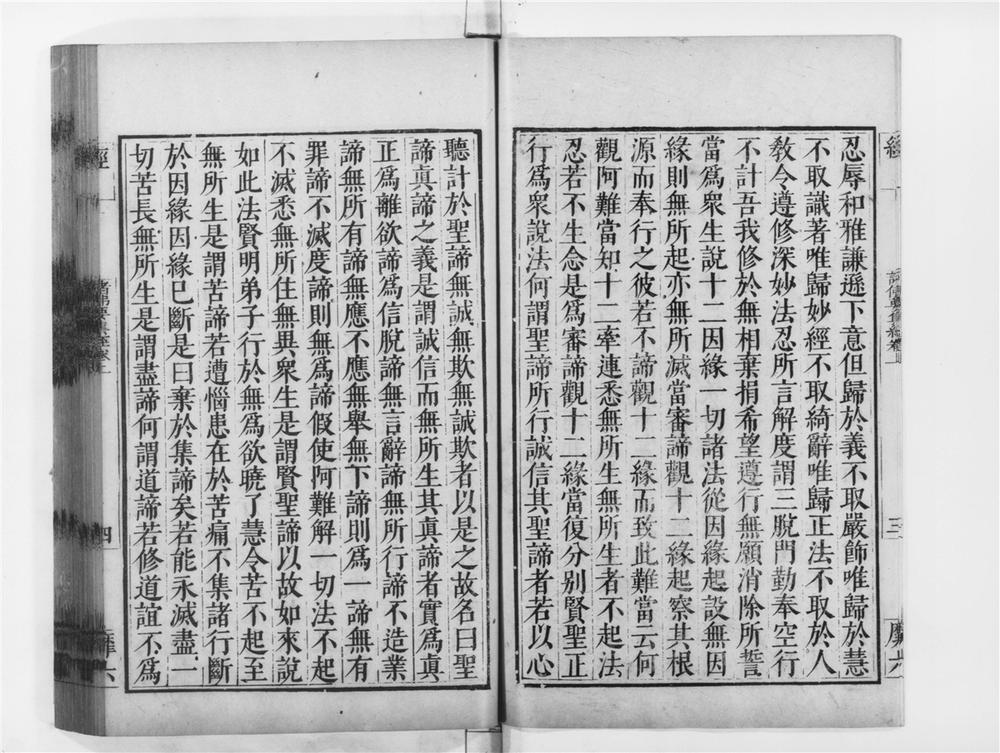 忍辱和雅謙遜下意但歸於義不取嚴飾唯歸於慧
不取識著唯歸妙經不取綺辭唯歸正法不取於人
敎令遵修深妙法忍所言解度謂三脫門勤奉空行
不計吾我修於無相棄捐希望遵行無願消除所誓
當爲衆生說十二因緣一切諸法從因緣起設無因
緣則無所起亦無所滅當審諦觀十二緣起察其根
源而奉行之彼若不諦觀十二緣而致此難當云何
觀阿難當知十二牽連悉無所生無所生者不起法
忍若不生念是爲審諦觀十二緣當復分别賢聖正
行爲衆說法何謂聖諦所行誠信其聖諦者若以心
三
聽計於聖諦無誠無欺無誠欺者以是之故名曰聖
諦眞諦之義是謂誠信而無所生其眞諦者實爲眞
正爲離欲諦爲信脫諦無言辭諦無所行諦不造業
諦無所有諦無應不應無舉無下諦則爲一諦無有
罪諦不滅度諦則無爲諦假使阿難解一切法不起
不滅悉無所住無與衆生是謂賢聖諦以故如來說
如此法賢明弟子行於無爲欲曉了慧令苦不起至
無所生是謂苦諦若遭惱患在於苦痛不集諸行斷
於因緣因緣已斷是曰棄於集諦矣若能永滅盡一
切苦長無所生是謂盡諦何謂道諦若修道誼不爲
經
四